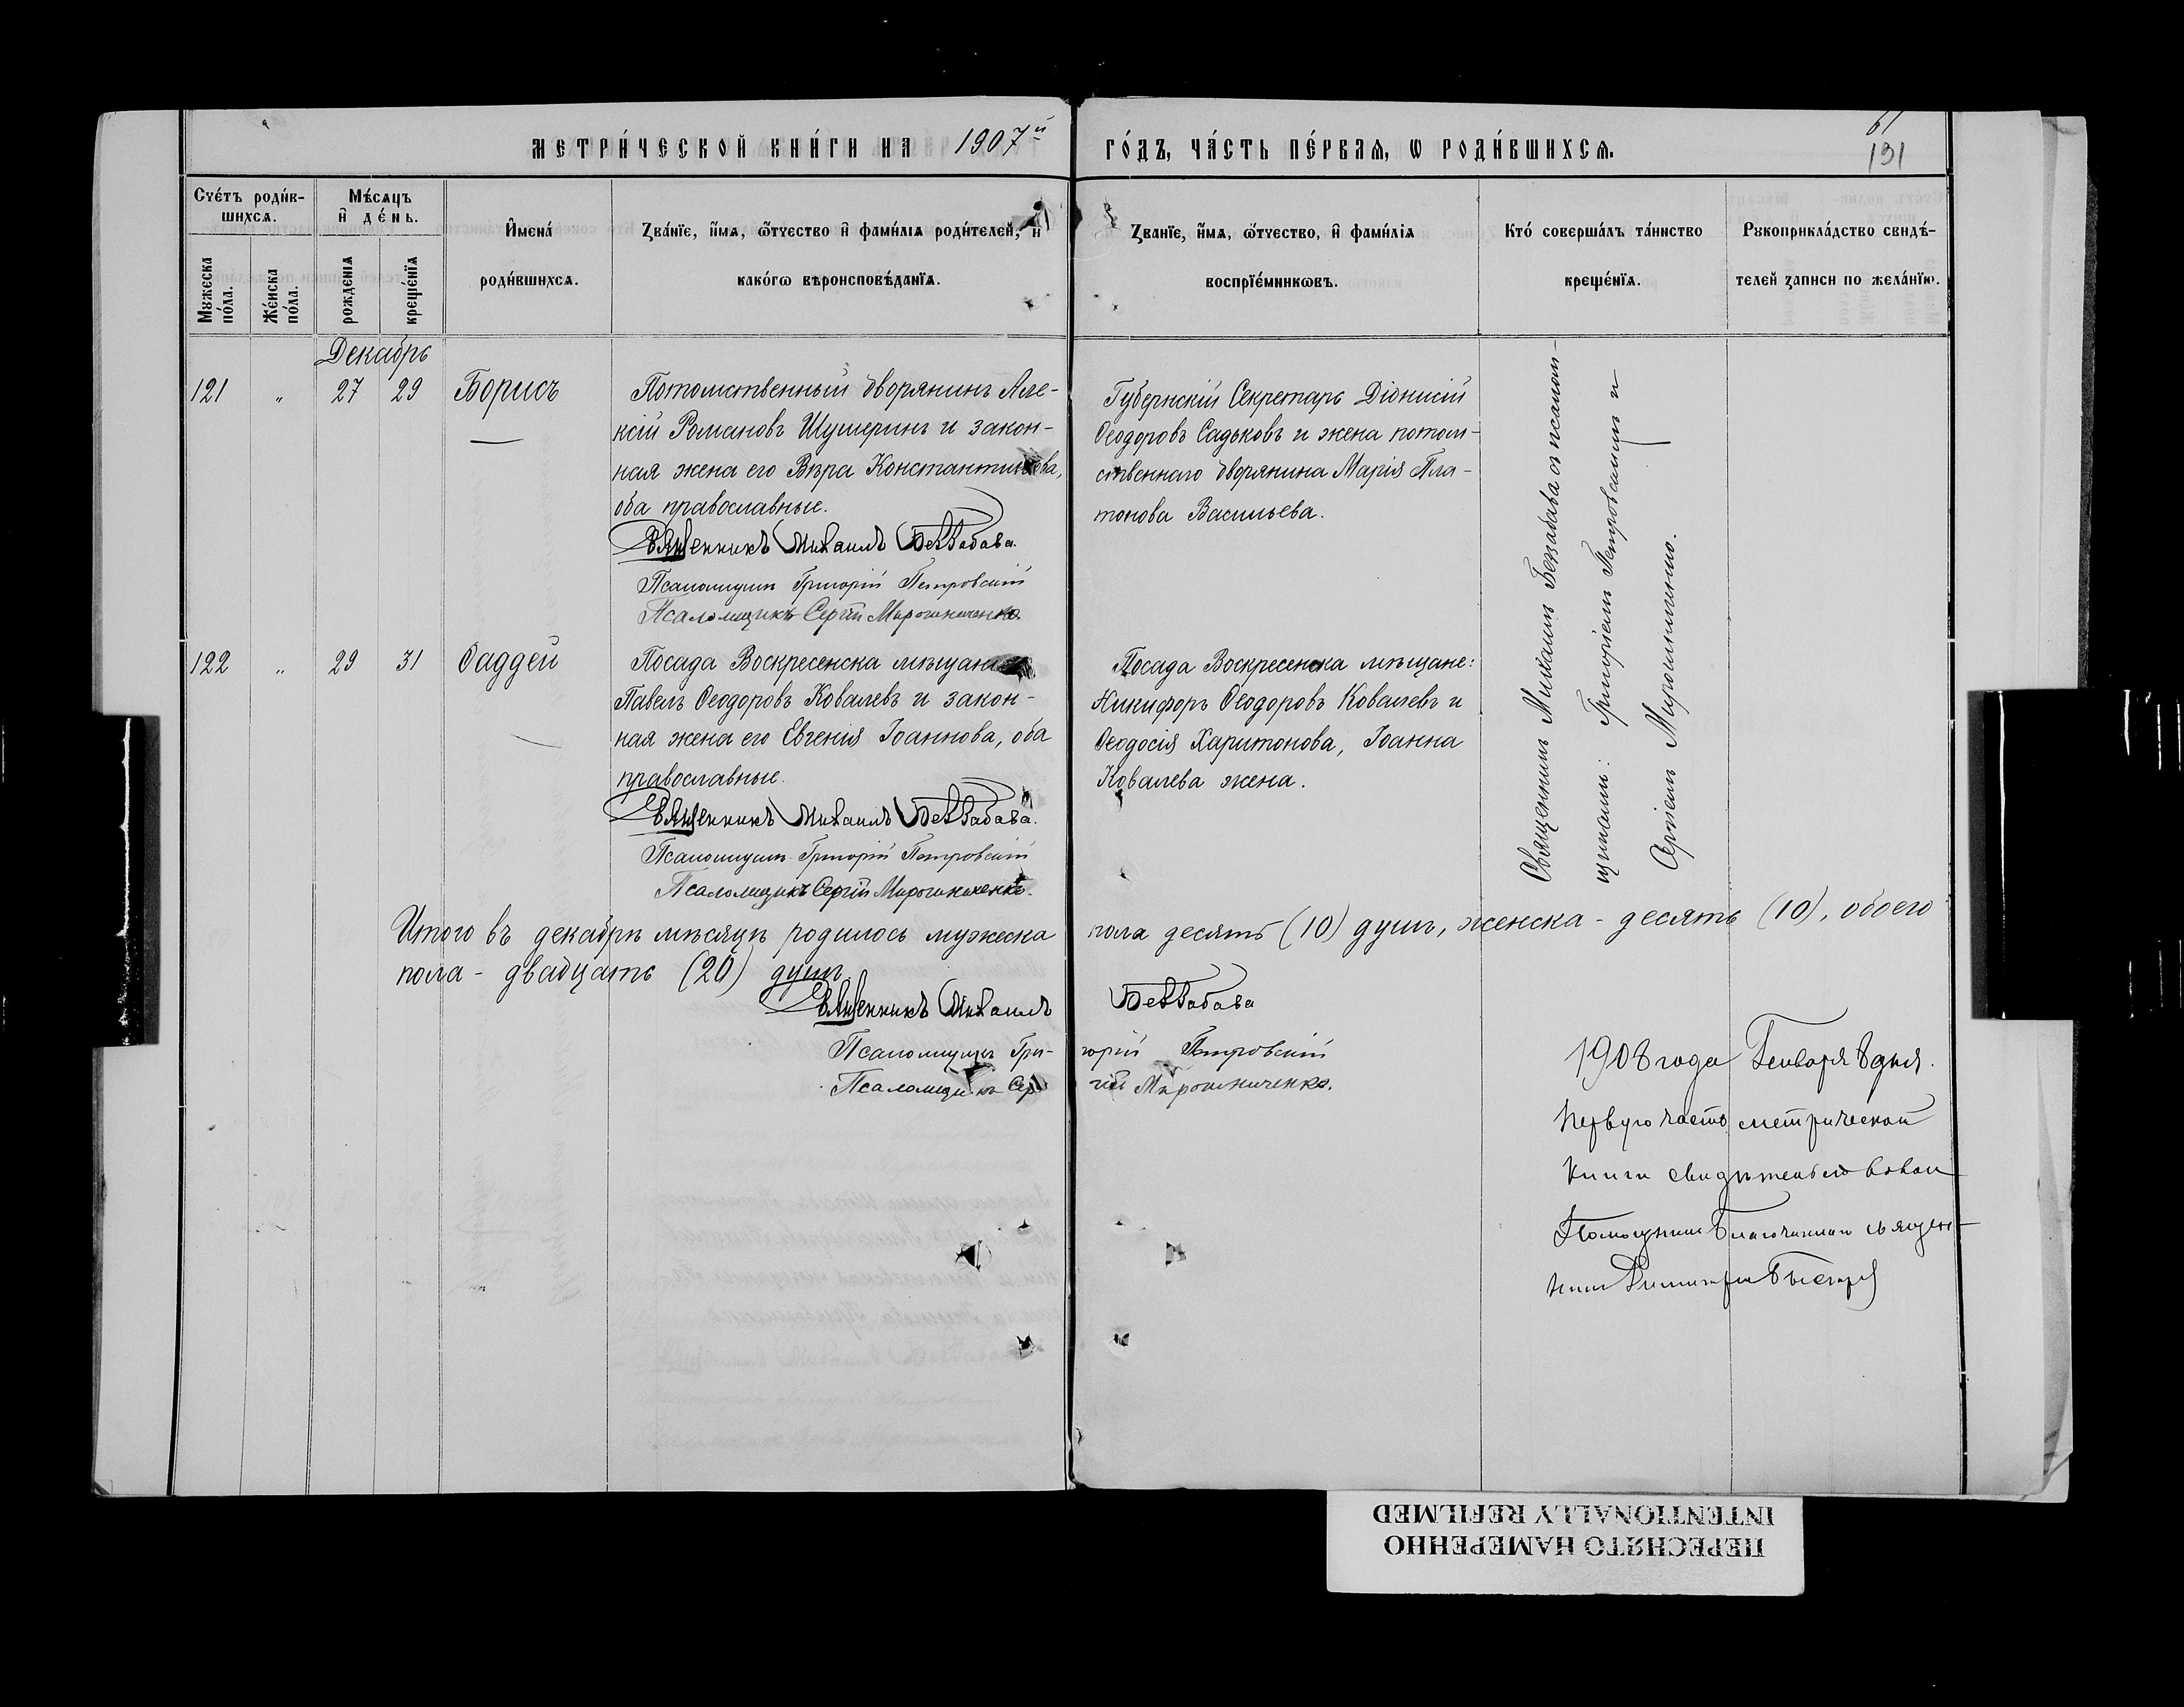 МЕТРИ́ЧЕСКОЙ КНИ́ГИ НА 1907й ГО́ДЪ, ЧА́СТЬ ПЕ́РВАѦ, Ѡ РОДИ́ВШИХСѦ.
61
131
Сче́тъ роди́в-
шихсѧ.
Мꙋжеска по́ла.
Же́нска по́ла.
Мѣ́сѧцъ
и҆ де́нь.
рожденїѧ
креще́нїѧ
И҆мена́
роди́вшихсѧ.
Ꙁва́нїе, и҆́мѧ, ѻ҆́тчество и҆ фами́лїѧ роди́телей, и҆
како́гѡ вѣроисповѣ́данїѧ.
Ꙁванїе, и҆́мѧ, ѻ҆́тчество, и҆ фами́лїѧ
воспрїе́мникѡвъ.
Кто́ соверша́лъ та́инство
креще́нїѧ.
Рꙋкоприкла́дство свидѣ́-
телей ꙁаписи по жела́нїю.
Декабрь
121 " 27 29 Борисъ
Потомственный дворянинъ Але-
ксій Романовъ Шушеринъ и закон-
ная жена его Вѣра Константинова,
оба православные.
Священникъ Михаилъ Беззабава.
Псаломщикъ Григорій Петровскій
Псаломщикъ Сергій Мирошниченко.
Губернскій Секретарь Діонисій
Ѳеодоровъ Садьковъ и жена потом-
ственнаго дворянина Марія Пла-
тонова Васильева.
Священникъ Михаилъ Беззабава съ псалом-
щиками: Григоріемъ Петровскимъ и
Сергіемъ Мирошниченко.
122 " 29 31 Ѳаддей
Посада Воскресенска мѣщанинъ
Павелъ Ѳеодоровъ Ковалевъ и закон-
ная жена его Евгенія Іоаннова, оба
православные.
Священникъ Михаилъ Беззабава.
Псаломщикъ Григорій Петровскій
Псаломщикъ Сергій Мирошниченко.
Посада Воскресенска мѣщане:
Никифоръ Ѳеодоровъ Ковалевъ и
Ѳеодосія Харитонова, Іоанна
Ковалева жена.
Итого въ декабрѣ мѣсяцѣ родилось мужеска пола десять (10) душъ, женска - десять (10), обоего
пола - двадцать (20) душъ.
Священникъ Михаилъ Беззабава
Псаломщикъ Григорій Петровскій
Псаломщикъ Сергій Мирошниченко.
1908 года Генваря 8 дня.
Первую часть метрической
книги свидѣтельствовалъ
Помощникъ Благочиннаго священ-
никъ Димитрій
ПЕРЕСНЯТО НАМЕРЕННО
INTENTIONALLY REFILMED